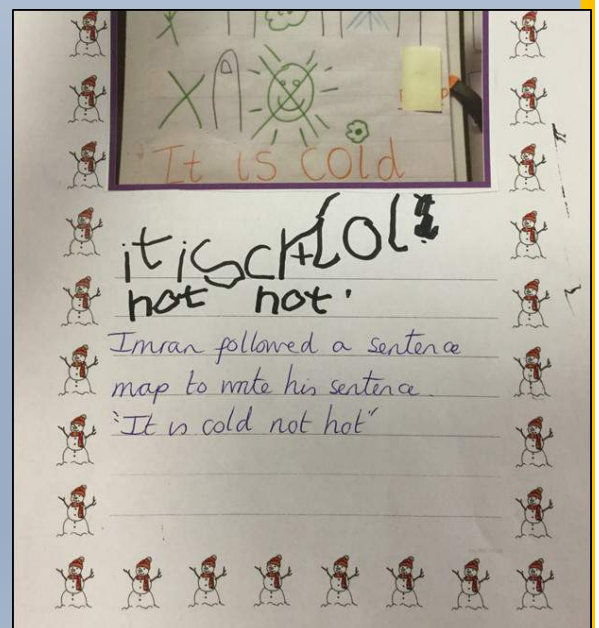 It is cold
it is
not hot.
Imran followed a sentence
map to write his sentence.
"It is cold not hot"